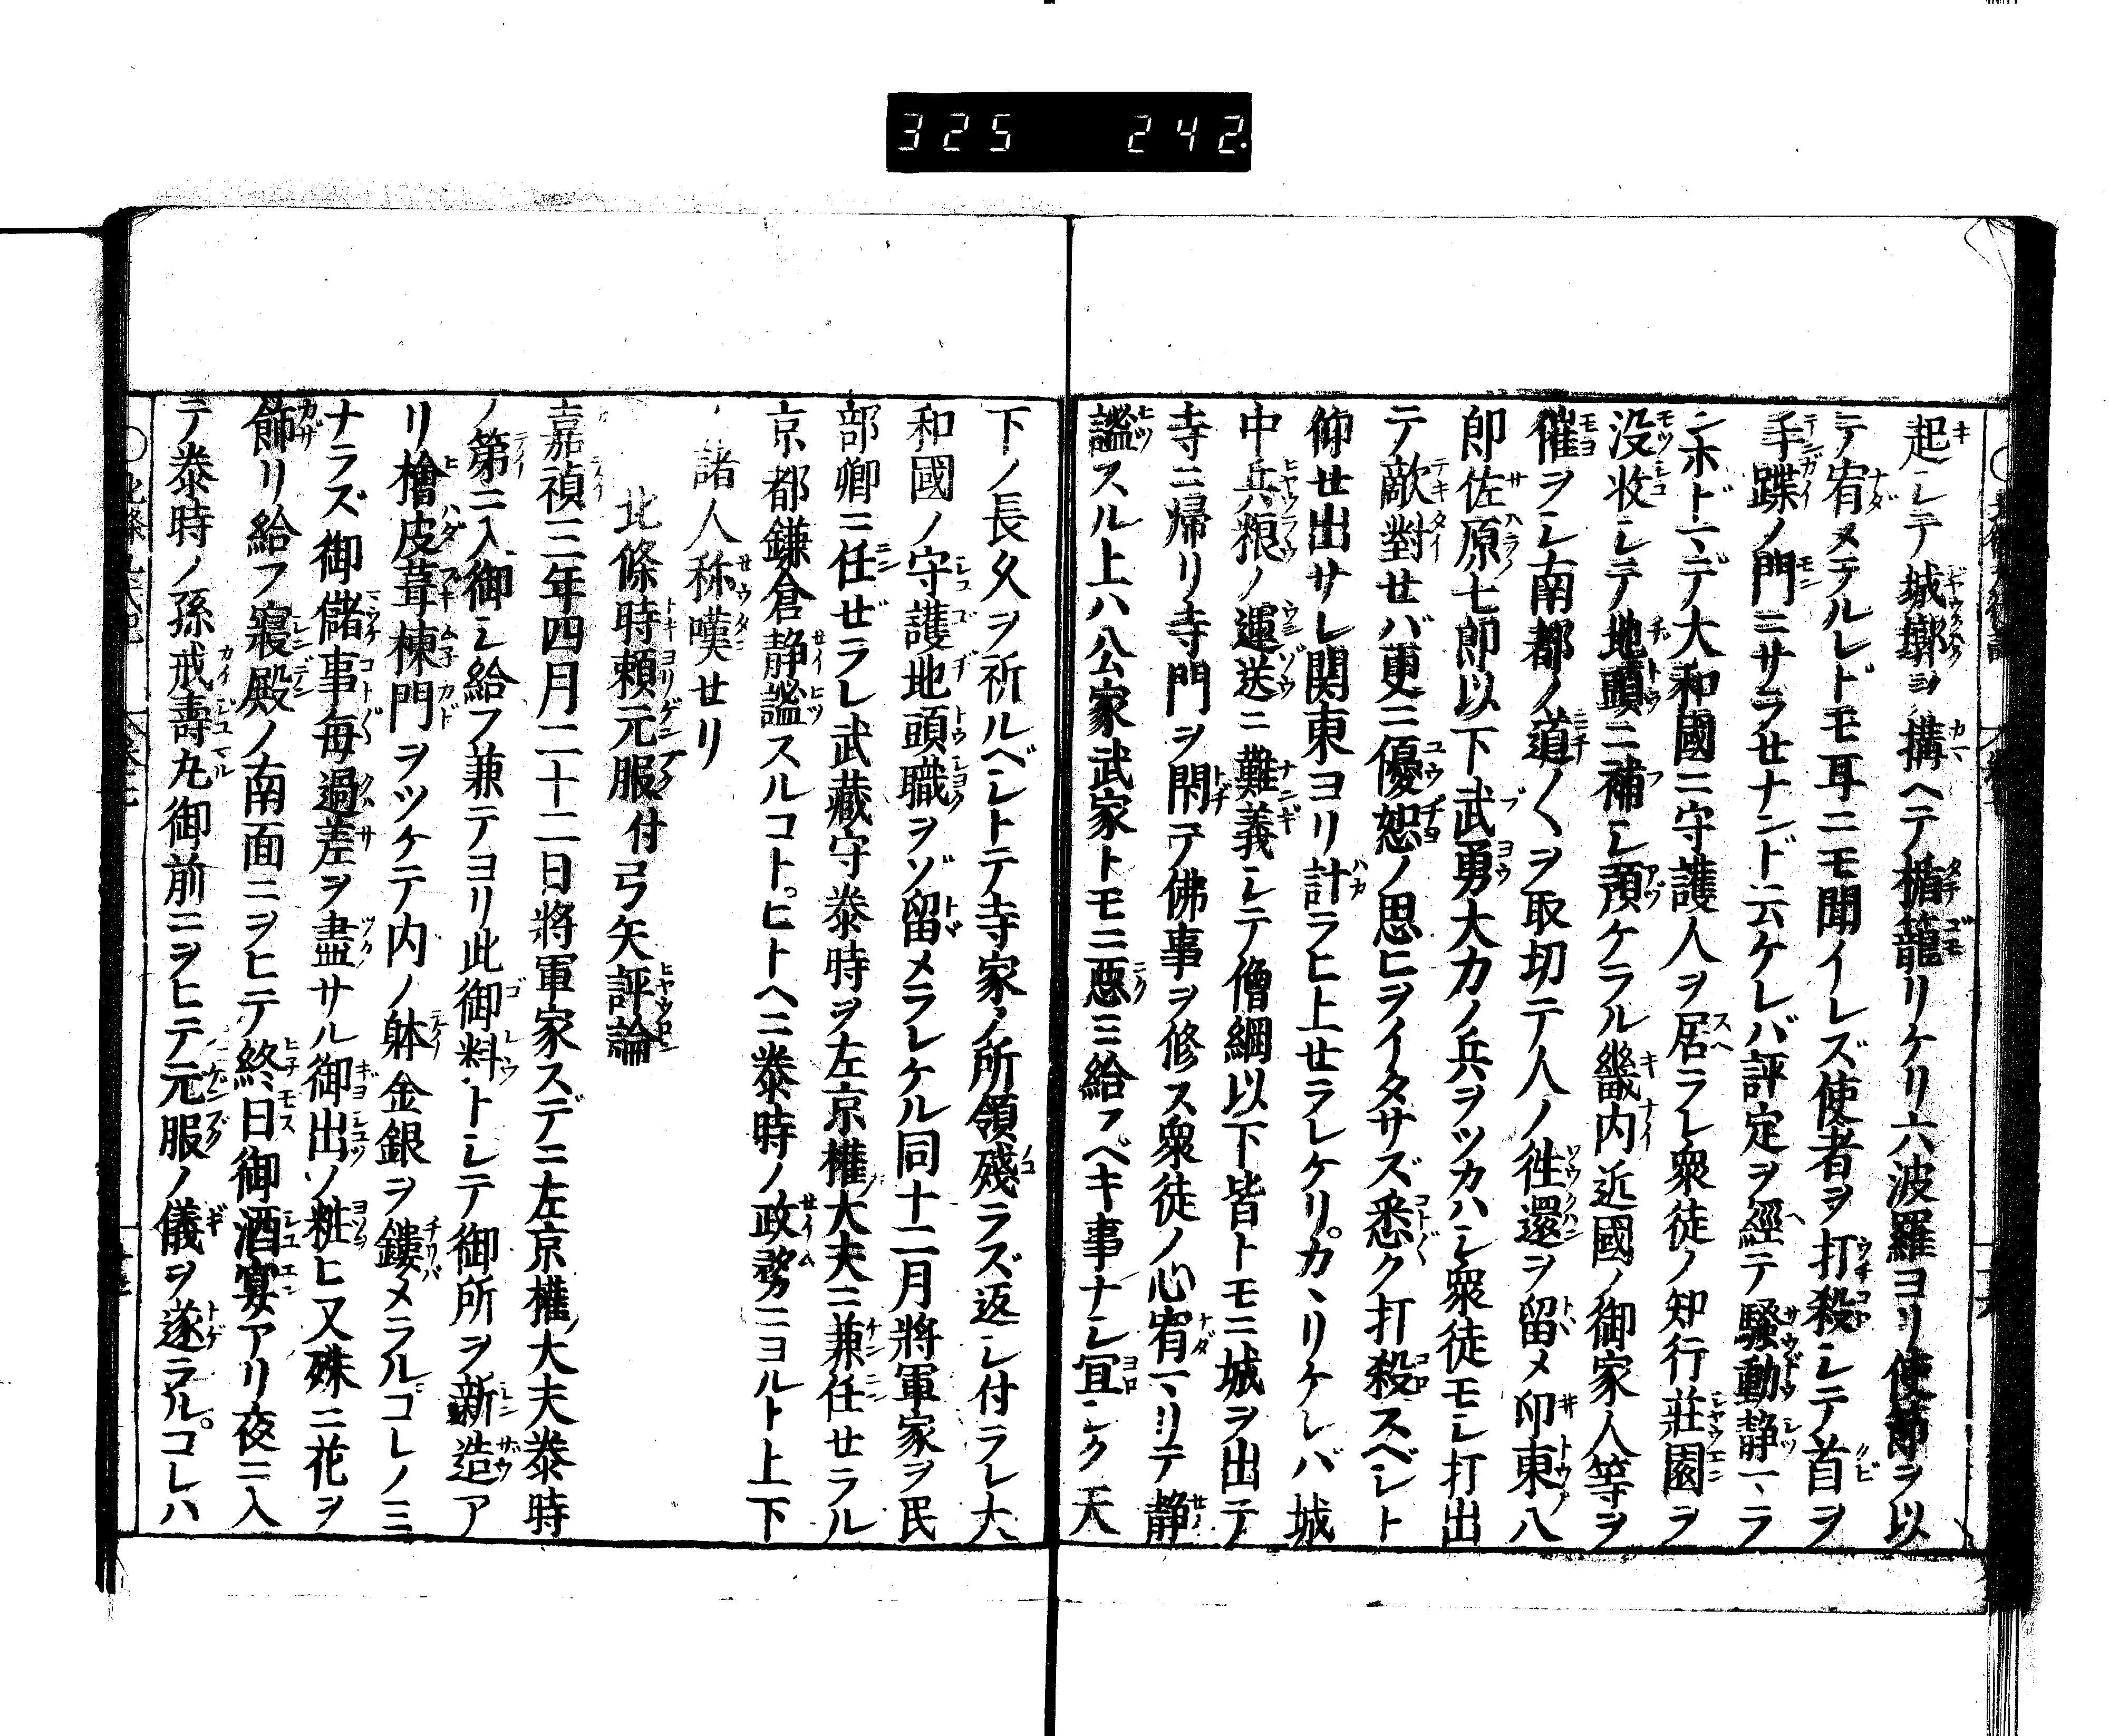 325 242
起シテ城墎ヲ構ヘテ楯籠リケリ六波羅ヨリ使節ヲ以
テ宥メラルレドモ耳ニモ聞イレズ使者ヲ打殺シテ首ヲ
手蹀ノ門ニサラセナンド云ケレバ評定ヲ經テ騒動静マラ
ンホドマデ大和國ニ守護人ヲ居ラレ衆徒ノ知行莊園ヲ
没收シテ地頭ニ補シ預ケラル畿内近國ノ御家人等ヲ
催ヲシ南都ノ道〱ヲ取切テ人ノ徃還ヲ留メ印東八
郎佐原七郎以下武勇大力ノ兵ヲツカハシ衆徒モシ打出
テ敵對セバ更ニ優恕ノ思ヒヲイタサズ悉ク打殺スベシト
仰セ出サレ関東ヨリ計ラヒ上セラレケリカヽリケレバ城
中兵粮ノ運送ニ難義シテ僧綱以下皆トモニ城ヲ出テ
寺ニ帰リ寺門ヲ閇テ佛事ヲ修ス衆徒ノ心宥マリテ静
謐スル上ハ公家武家トモニ惡ミ給フベキ事ナシ宜シク天
下ノ長久ヲ祈ルベシトテ寺家ノ所領殘ラズ返シ付ラレ大
和國ノ守護地頭職ヲゾ留メラレケル同十二月將軍家ヲ民
部卿ニ任ゼラレ武藏守泰時ヲ左京權大夫ニ兼任セラル
京都鎌倉静謐スルコトヒトヘニ泰時ノ政務ニヨルト上下
ノ諸人称嘆セリ
北條時頼元服付弓矢評論
嘉禎三年四月二十二日將軍家スデニ左京權大夫泰時
ノ第ニ入御シ給フ兼テヨリ此御料トシテ御所ヲ新造ア
リ檜皮葺棟門ヲツケテ内ノ躰金銀ヲ鏤メラルコレノミ
ナラズ御儲事毎過差ヲ盡サル御出ノ粧ヒ又殊ニ花ヲ
飾リ給フ寢殿ノ南面ニヲヒテ終日御酒宴アリ夜ニ入
テ泰時ノ孫戒壽丸御前ニヲヒテ元服ノ儀ヲ遂ラルコレハ